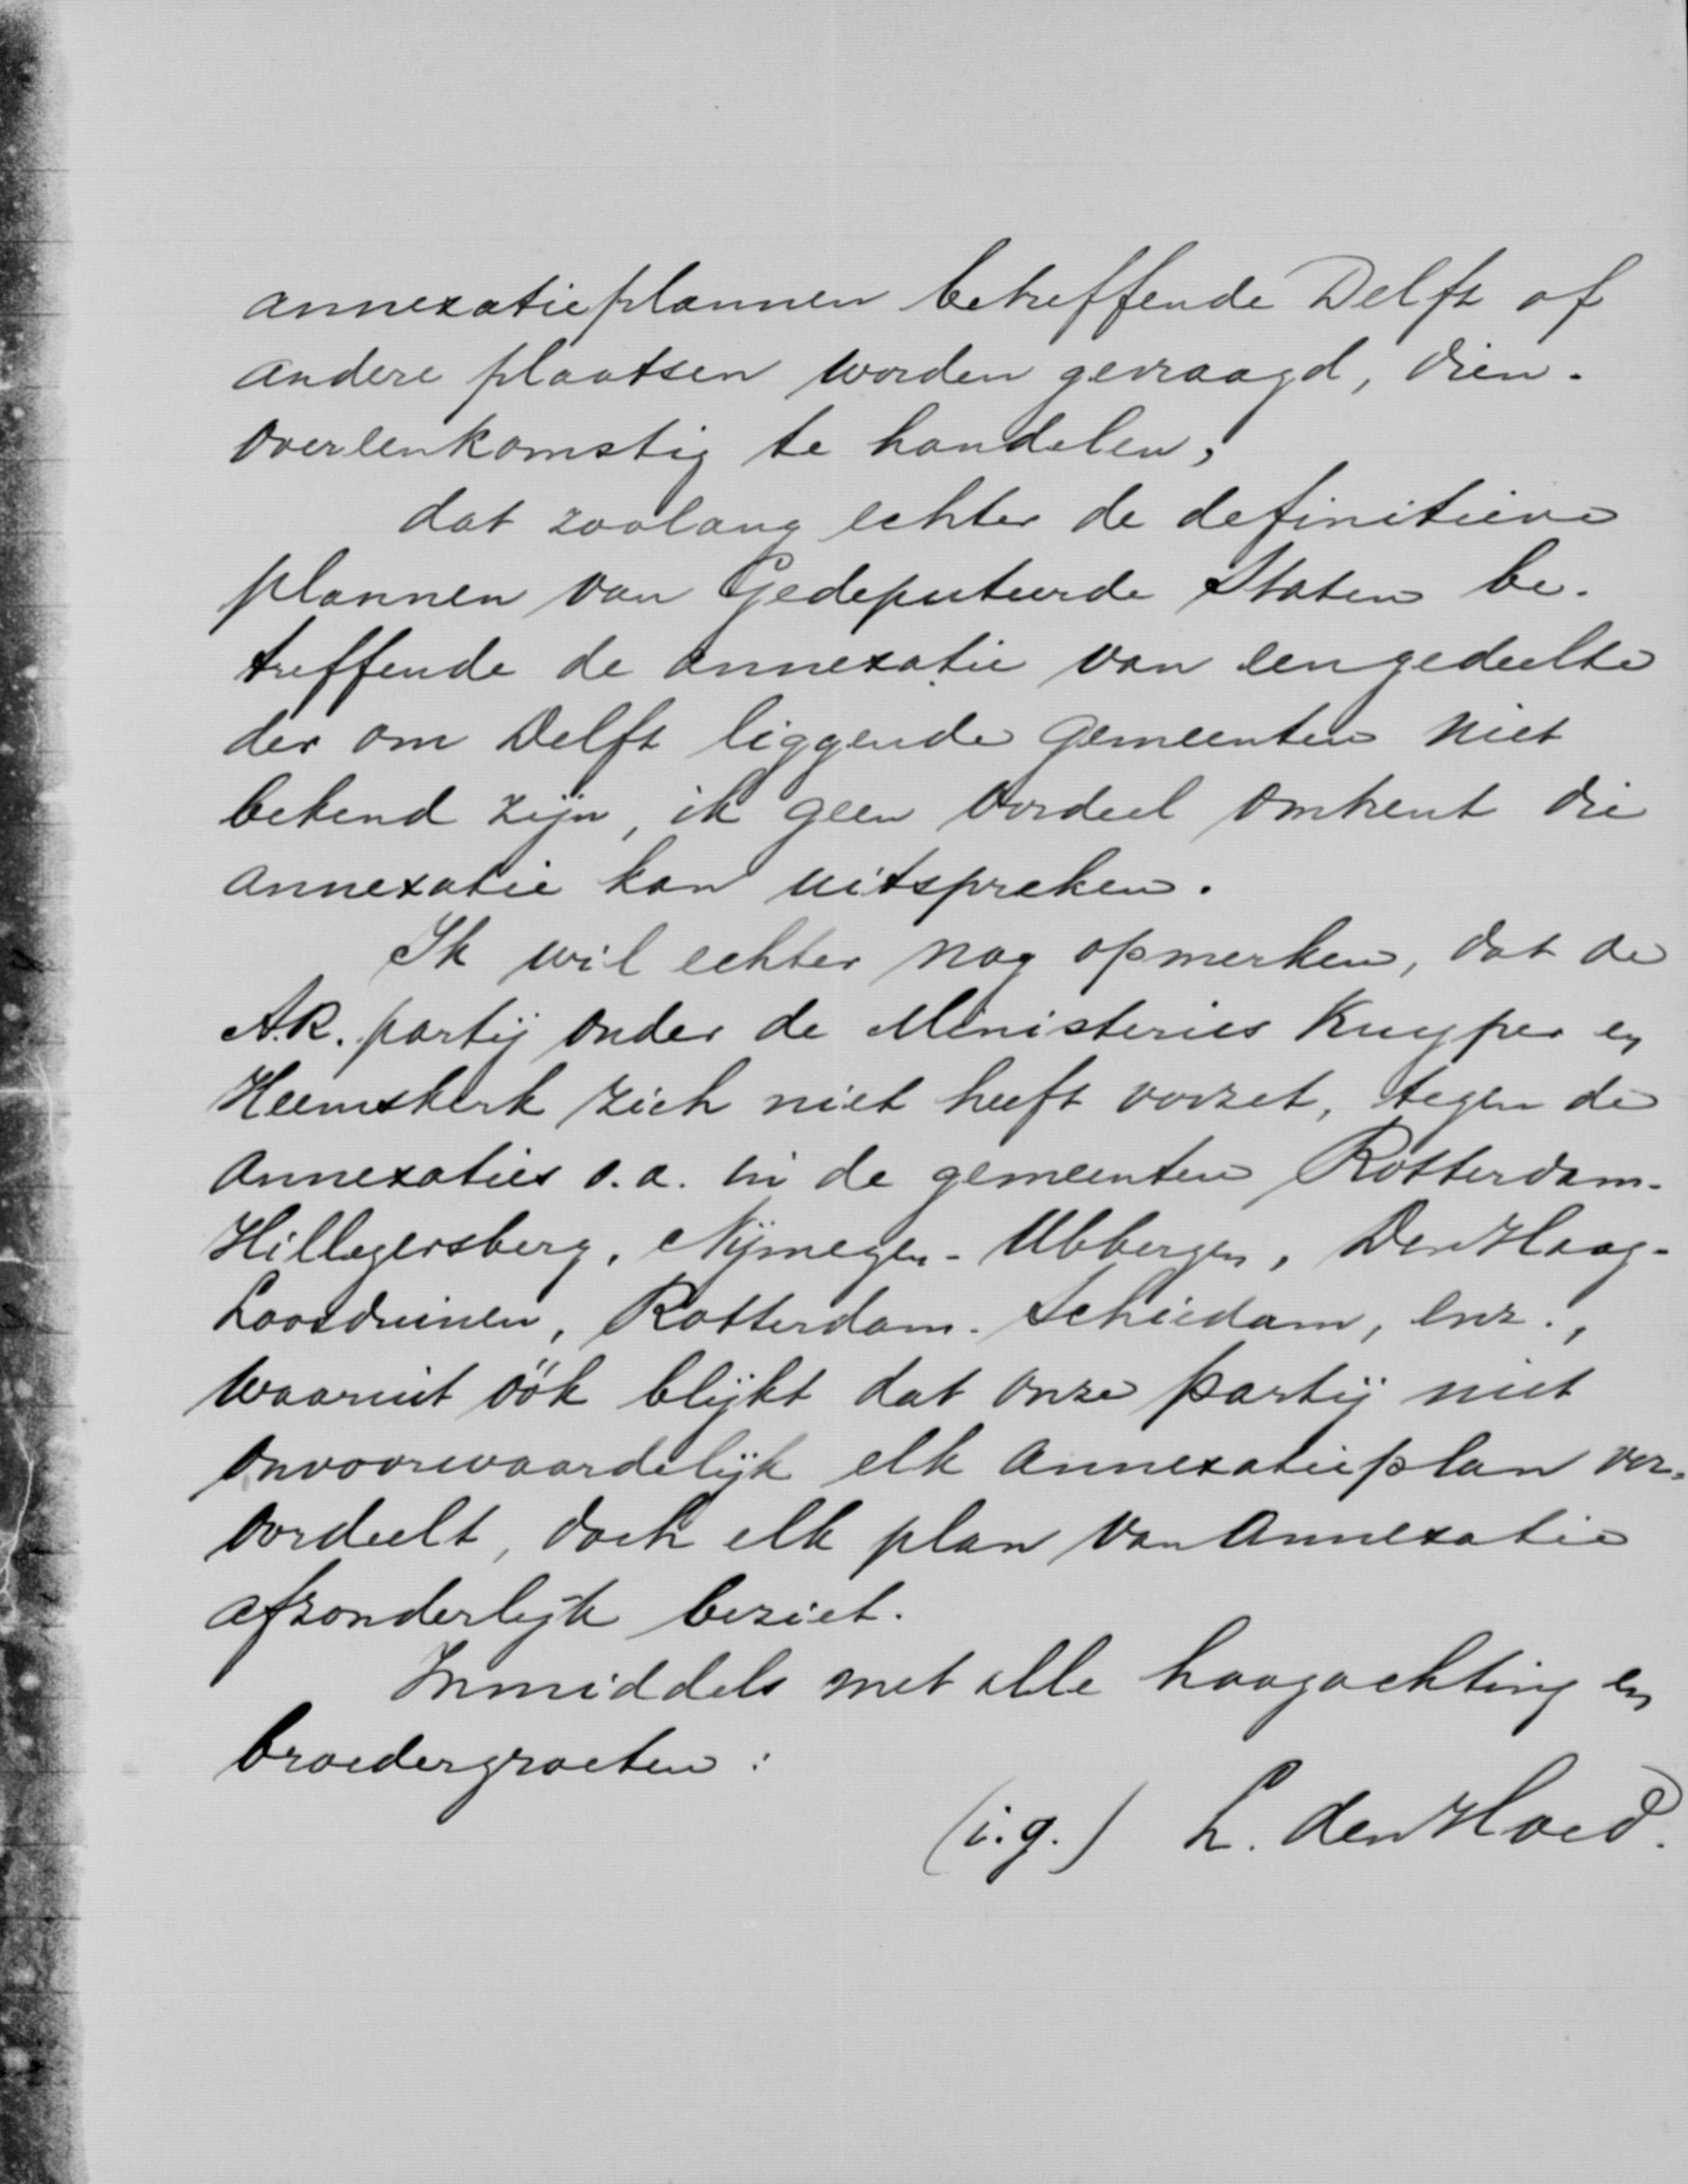 annexatieplannen betreffende Delft of
andere plaatsen worden gevraagd, dien-
overeenkomstig te handelen,
dat zoolang echter de definitieve
plannen van Gedeputeerde Staten be-
treffende de annexatie van een gedeelte
der om Delft liggende gemeenten niet
bekend zijn, ik geen oordeel omtrent die
annexatie kan uitspreken.
Ik wil echter nog opmerken, dat de
A.R. partij onder de Ministeries Kuyper en
Heemskerk zich niet heeft verzet, tegen de
annexaties o.a. in de gemeenten Rotterdam-
Hillegersberg, Nijmegen-Ubbergen, Den Haag-
Loosduinen, Rotterdam-Schiedam, enz.,
waaruit óók blijkt dat onze partij niet
onvoorwaardelijk elk annexatieplan ver-
oordeelt, doch elk plan van annexatie
afzonderlijk beziet.
Inmiddels met alle hoogachting en
broedergroeten:
(i.g.) L. den Hoed.